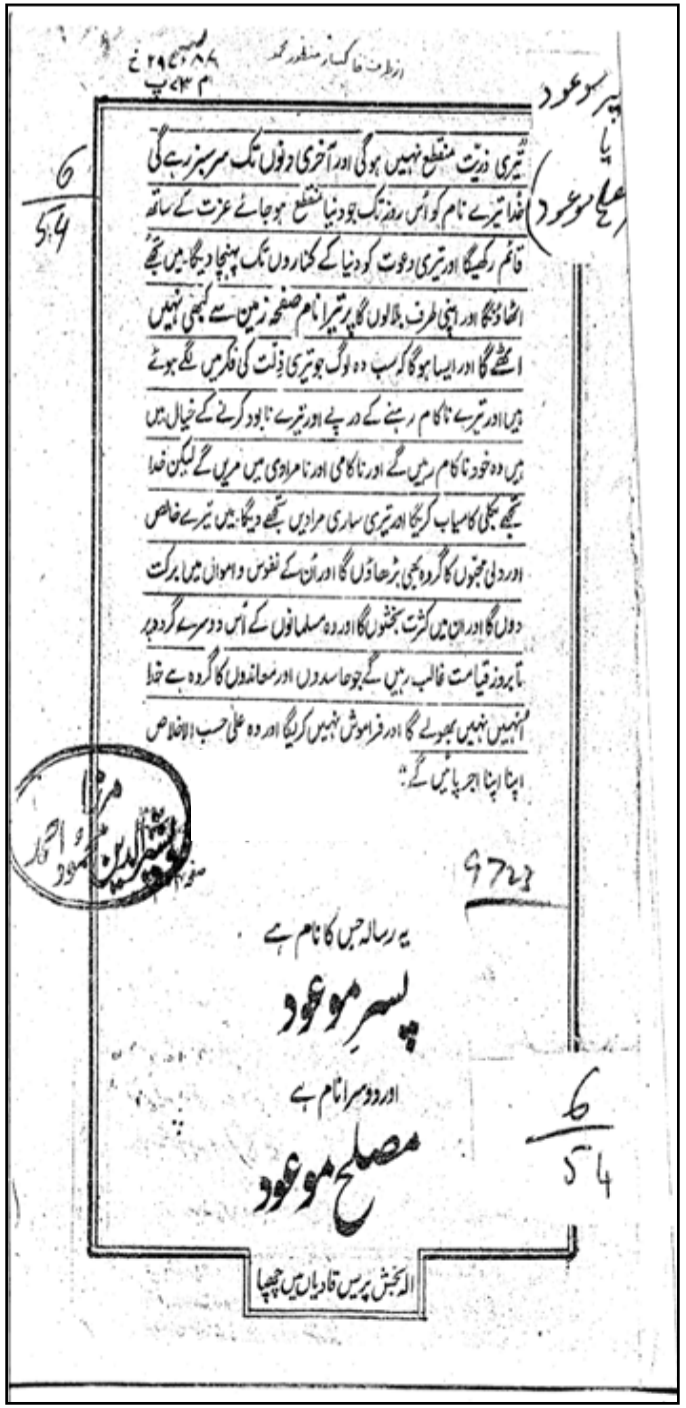 از طرف خاکسار منظور محمد
پسر موعود
یا
(مصلح موعود)
6
54
تیری ذریت منقطع نہیں ہوگی اور آخری دنوں تک سرسبز رہے گی
خدا تیرے نام کو اُس روز تک جو دنیا منقطع ہو جائے عزت کے ساتھ
قائم رکھیگا اور تیری دعوت کو دنیا کے کناروں تک پہنچا دیگا۔ میں تجھے
اٹھاؤنگا اور اپنی طرف بلالوں گا پر تیرا نام صفحہ زمین سے کبھی نہیں
اٹھے گا اور ایسا ہوگا کہ سب وہ لوگ جو تیری ذلّت کی فکر میں لگے ہوئے
ہیں اور تیرے ناکام رہنے کے درپے اور تیرے نابود کرنے کے خیال میں
ہیں وہ خود ناکام رہیں گے اور ناکامی اور نامرادی میں مریں گے لیکن خدا
تجھے بکلی کامیاب کریگا اور تیری ساری مرادیں تجھے دیگا۔ میں تیرے خالص
اور دلی محبوں کا گروہ بھی بڑھاؤں گا اور اُن کے نفوس و اموال میں برکت
دوں گا اور ان میں کثرت بخشوں گا اور وہ مسلمانوں کے اُس دوسرے گروہ پر
تا بروز قیامت غالب رہیں گے جو حاسدوں اور معاندوں کا گروہ ہے خدا
اُنہیں نہیں بھولے گا اور فراموش نہیں کریگا اور وہ علیٰ حسب الاخلاص
اپنا اپنا اجر پائیں گے"
مرزا
بشیر الدین محمود احمد
9723
یہ رسالہ جس کا نام ہے
پسرِ موعود
اور دوسرا نام ہے
مصلح موعود
6
54
الہ بخش پریس قادیاں میں چھپا